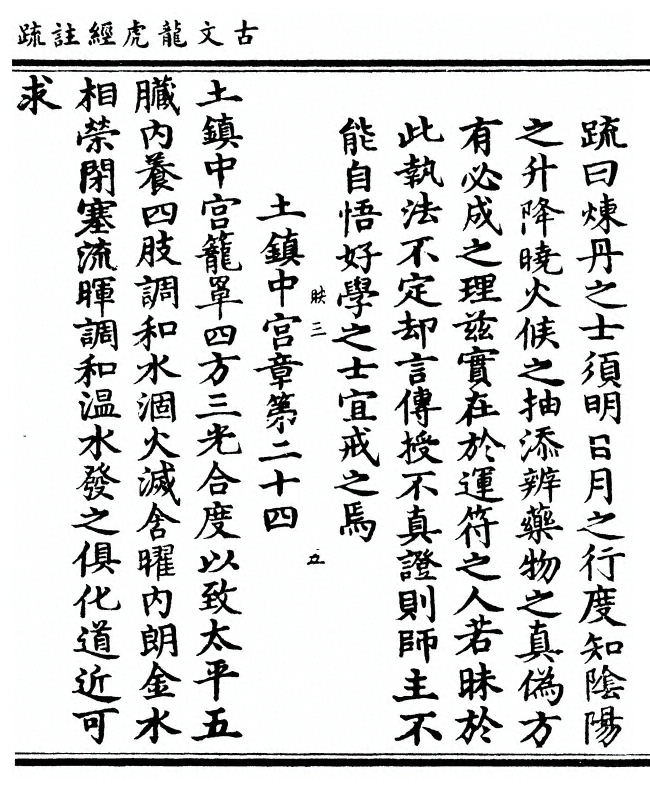 古文龍虎經註疏
疏曰煉丹之士須明日月之行度知陰陽
之升降曉火候之抽添辨藥物之真偽方
有必成之理兹實在於運符之人若昧於
此執法不定却言傳授不真證則師主不
能自悟好學之士宜戒之焉
映三
五
土鎮中宮章第二十四
土鎮中宮籠罩四方三光合度以致太平五
臟内養四肢調和水涸火滅含曜内朗金水
相榮閉塞流暉調和温水發之俱化道近可
求